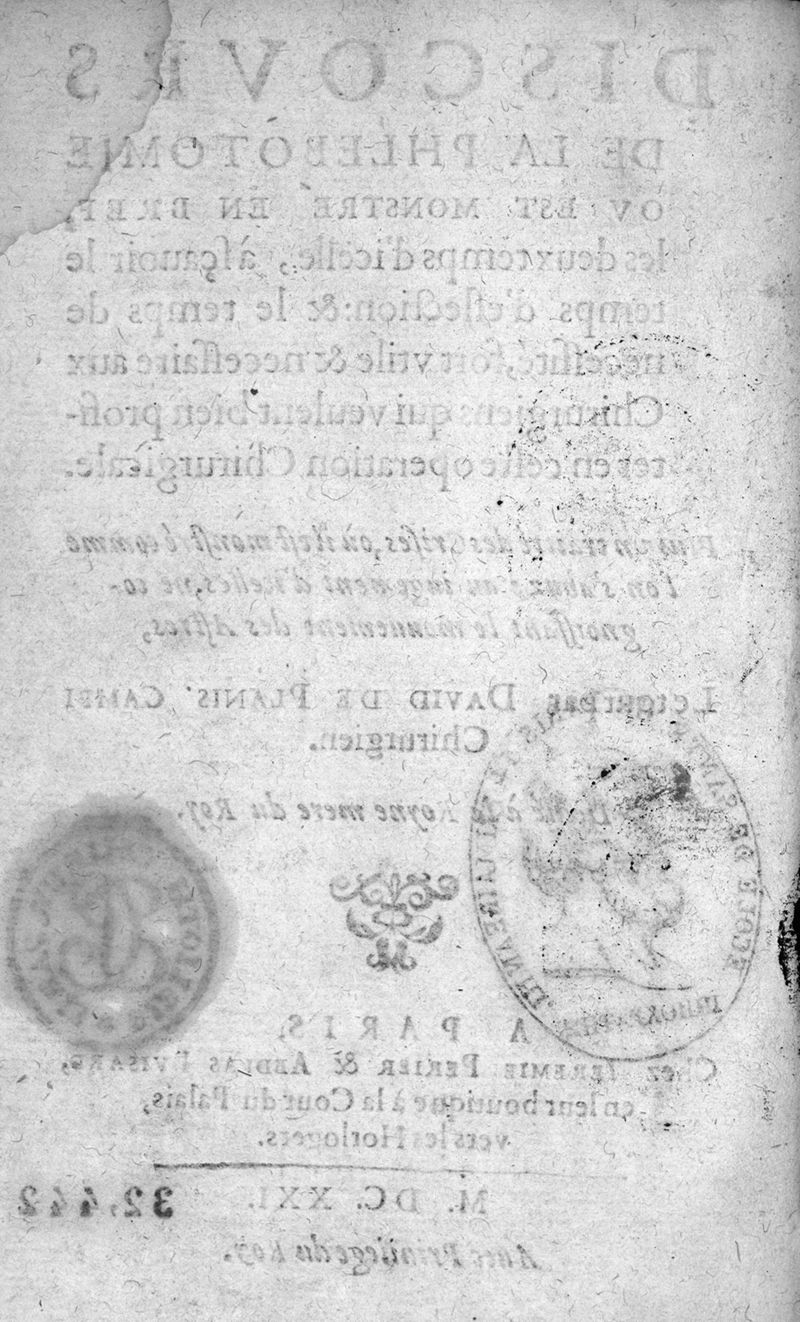 DISCOVRS
DE LA PHLEBOTOMIE
OV EST MONSTRE EN BREF,
les deux temps d'icelle, à sçauoir le
temps d'eslection: & le temps de
necessité, fort vtile & necessaire aux
Chirurgiens qui veulent bien profi-
ter en ceste operation Chirurgicale.
Plus vn traicté des Crises, où il est monstré comme
l'on s'abuze au iugement d'icelles, ne co-
gnoissant le mouuement des Astres,
Le tout par DAVID DE PLANIS CAMPI
Chirurgien.
Dedié à la Royne mere du Roy.
A PARIS,
Chez IEREMIE PERIER & ABDIAS BVISARD,
en leur boutique à la Cour du Palais,
vers les Horlogers.
M. DC. XXI.
Auec Priuilege du Roy.
32,442
ECOLE DE SANTE DE PARIS